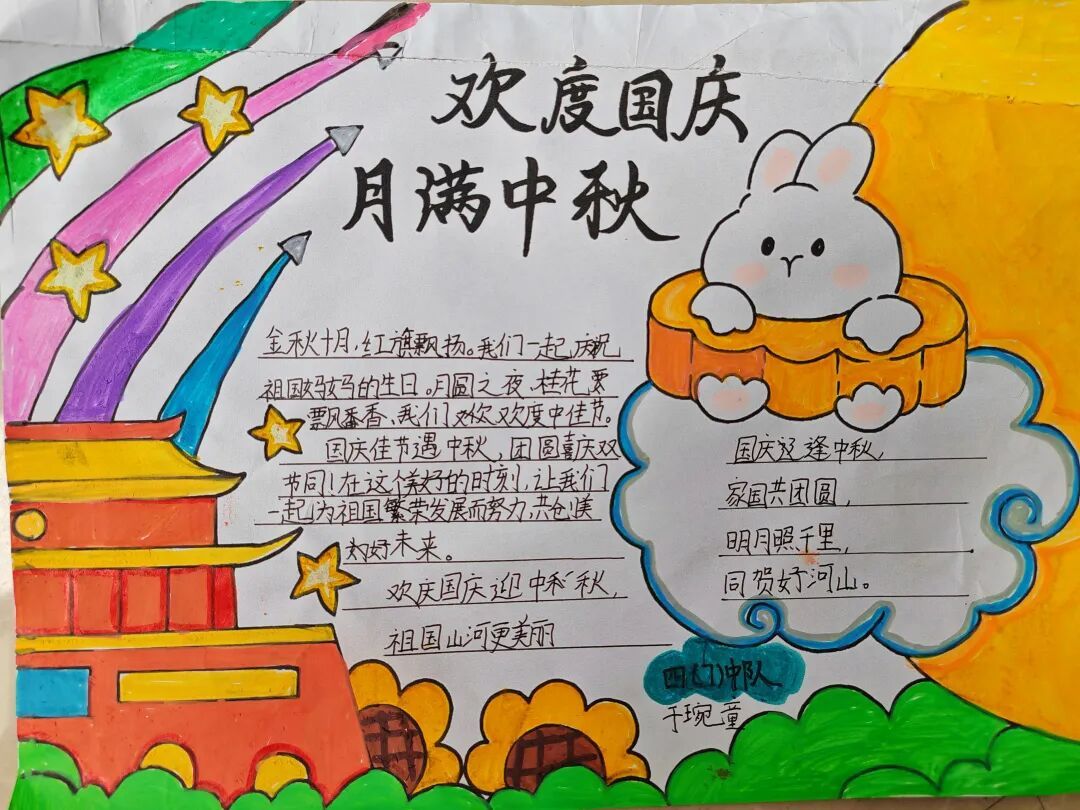 欢度国庆
月满中秋
金秋十月，红旗飘扬。我们一起庆祝
祖国妈妈的生日。月圆之夜、桂花
飘香、我们欢度中佳节。
国庆佳节遇中秋，团圆喜庆双
节同！在这个美好的时刻，让我们
一起为祖国繁荣发展而努力，共创美
好未来。
欢庆国庆迎中秋，
祖国山河更美丽
国庆逢中秋，
家国共团圆，
明月照千里，
同贺好河山。
四（1）中队
于琬童